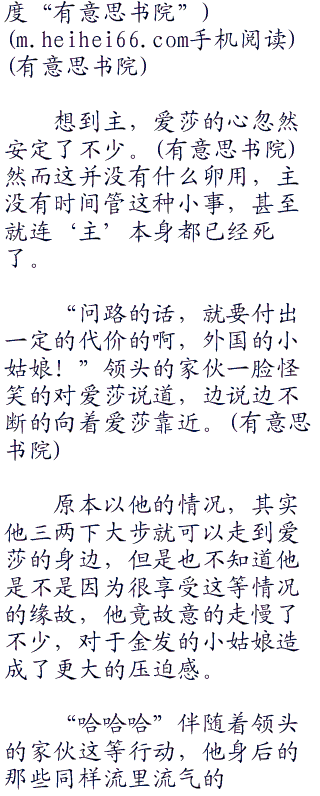 度“有意思书院”)
(m.heihei66.com手机阅读)
(有意思书院)
想到主，爱莎的心忽然
安定了不少。(有意思书院)
然而这并没有什么卵用，主
没有时间管这种小事，甚至
就连‘主’本身都已经死
了。
“问路的话，就要付出
一定的代价的啊，外国的小
姑娘！”领头的家伙一脸怪
笑的对爱莎说道，边说边不
断的向着爱莎靠近。(有意思
书院)
原本以他的情况，其实
他三两下大步就可以走到爱
莎的身边，但是也不知道他
是不是因为很享受这等情况
的缘故，他竟故意的走慢了
不少，对于金发的小姑娘造
成了更大的压迫感。
“哈哈哈”伴随着领头
的家伙这等行动，他身后的
那些同样流里流气的